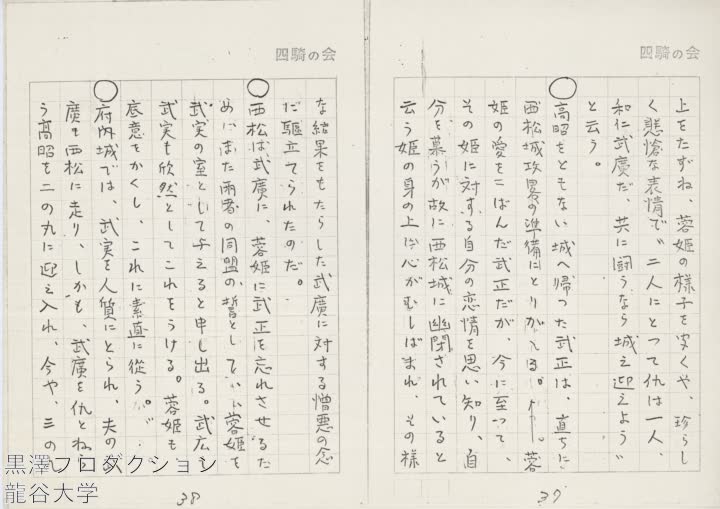 四騎の会
上をたずね、蓉姫の様子を突くや、珍らし
く悲愴な表情で〝二人にとって仇は一人、
和仁武廣だ、共に闘うなら城え迎えよう〟
と云う。
高昭をともない城へ帰った武正は、直ちに
西松城攻畧の準備にとりかゝる。蓉
姫の愛をこばんだ武正だが、今に至って、
その姫に対する自分の恋情を思い知り、自
分を慕うが故に西松城に幽閉されていると
云う姫の身の上に心がむしばまれ、その様
37
四騎の会
な結果をもたらした武廣に対する憎悪の念
だ駆立てられたのだ。
西松は武廣に、蓉姫に武正を忘れさせるた
めにまた両者の同盟の誓として 蓉姫を
武実の室として与えると申し出る。武広
武実も欣然としてこれをうける。蓉姫も
底意をかくし、これに素直に従う。
府内城では、武実を人質にとられ、夫の
廣も西松に走り、しかも、武廣を仇とね
う高昭を二の丸に迎え入れ、今や、三の
38
黒澤プロダクション
龍谷大学